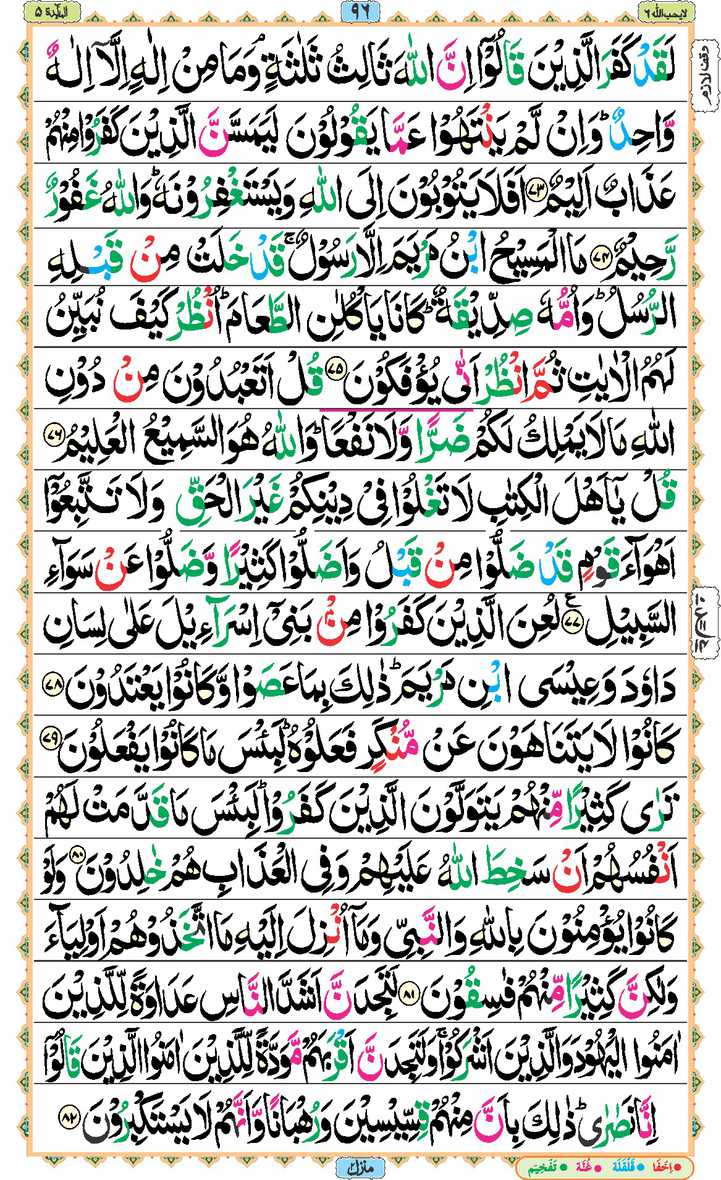 لایحب اللہ ٦
٩٦
المآئدة ٥
لَقَدْ كَفَرَ الَّذِیْنَ قَالُوْۤا اِنَّ اللّٰهَ ثَالِثُ ثَلٰثَةٍ ۘ وَمَا مِنْ اِلٰهٍ اِلَّاۤ اِلٰهٌ
وقف لازم
وَّاحِدٌ ؕ وَاِنْ لَّمْ یَنْتَهُوْا عَمَّا یَقُوْلُوْنَ لَیَمَسَّنَّ الَّذِیْنَ كَفَرُوْا مِنْهُمْ
عَذَابٌ اَلِیْمٌ ۝٧٣ اَفَلَا یَتُوْبُوْنَ اِلَی اللّٰهِ وَیَسْتَغْفِرُوْنَهٗ ؕ وَاللّٰهُ غَفُوْرٌ
رَّحِیْمٌ ۝٧٤ مَا الْمَسِیْحُ ابْنُ مَرْیَمَ اِلَّا رَسُوْلٌ ۚ قَدْ خَلَتْ مِنْ قَبْلِهِ
الرُّسُلُ ؕ وَاُمُّهٗ صِدِّیْقَةٌ ؕ كَانَا یَاْكُلٰنِ الطَّعَامَ ؕ اُنْظُرْ كَیْفَ نُبَیِّنُ
لَهُمُ الْاٰیٰتِ ثُمَّ انْظُرْ اَنّٰی یُؤْفَكُوْنَ ۝٧٥ قُلْ اَتَعْبُدُوْنَ مِنْ دُوْنِ
اللّٰهِ مَا لَا یَمْلِكُ لَكُمْ ضَرًّا وَّلَا نَفْعًا ؕ وَاللّٰهُ هُوَ السَّمِیْعُ الْعَلِیْمُ ۝٧٦
قُلْ یٰۤاَهْلَ الْكِتٰبِ لَا تَغْلُوْا فِیْ دِیْنِكُمْ غَیْرَ الْحَقِّ وَلَا تَتَّبِعُوْۤا
اَهْوَآءَ قَوْمٍ قَدْ ضَلُّوْا مِنْ قَبْلُ وَاَضَلُّوْا كَثِیْرًا وَّضَلُّوْا عَنْ سَوَآءِ
السَّبِیْلِ ۝٧٧ ع لُعِنَ الَّذِیْنَ كَفَرُوْا مِنْۢ بَنِیْۤ اِسْرَآءِیْلَ عَلٰی لِسَانِ
دَاوٗدَ وَعِیْسَی ابْنِ مَرْیَمَ ؕ ذٰلِكَ بِمَا عَصَوْا وَّكَانُوْا یَعْتَدُوْنَ ۝٧٨
كَانُوْا لَا یَتَنَاهَوْنَ عَنْ مُّنْكَرٍ فَعَلُوْهُ ؕ لَبِئْسَ مَا كَانُوْا یَفْعَلُوْنَ ۝٧٩
تَرٰی كَثِیْرًا مِّنْهُمْ یَتَوَلَّوْنَ الَّذِیْنَ كَفَرُوْا ؕ لَبِئْسَ مَا قَدَّمَتْ لَهُمْ
اَنْفُسُهُمْ اَنْ سَخِطَ اللّٰهُ عَلَیْهِمْ وَفِی الْعَذَابِ هُمْ خٰلِدُوْنَ ۝٨٠ وَلَوْ
كَانُوْا یُؤْمِنُوْنَ بِاللّٰهِ وَالنَّبِیِّ وَمَاۤ اُنْزِلَ اِلَیْهِ مَا اتَّخَذُوْهُمْ اَوْلِیَآءَ
وَلٰكِنَّ كَثِیْرًا مِّنْهُمْ فٰسِقُوْنَ ۝٨١ لَتَجِدَنَّ اَشَدَّ النَّاسِ عَدَاوَةً لِّلَّذِیْنَ
اٰمَنُوا الْیَهُوْدَ وَالَّذِیْنَ اَشْرَكُوْا ۚ وَلَتَجِدَنَّ اَقْرَبَهُمْ مَّوَدَّةً لِّلَّذِیْنَ اٰمَنُوا الَّذِیْنَ قَالُوْۤا
اِنَّا نَصٰرٰی ؕ ذٰلِكَ بِاَنَّ مِنْهُمْ قِسِّیْسِیْنَ وَرُهْبَانًا وَّاَنَّهُمْ لَا یَسْتَكْبِرُوْنَ ۝٨٢
منزل ٢
اِخْفَا قَلْقَلَة غُنَّة تَفْخِیْم